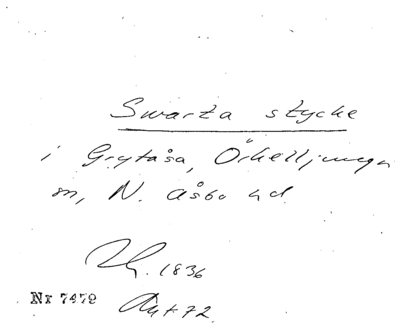 Swarta stycke
i Grytåsa, Örkelljunga
sn, N. Åsbo hd
1836
Nr 7479
Akt 72